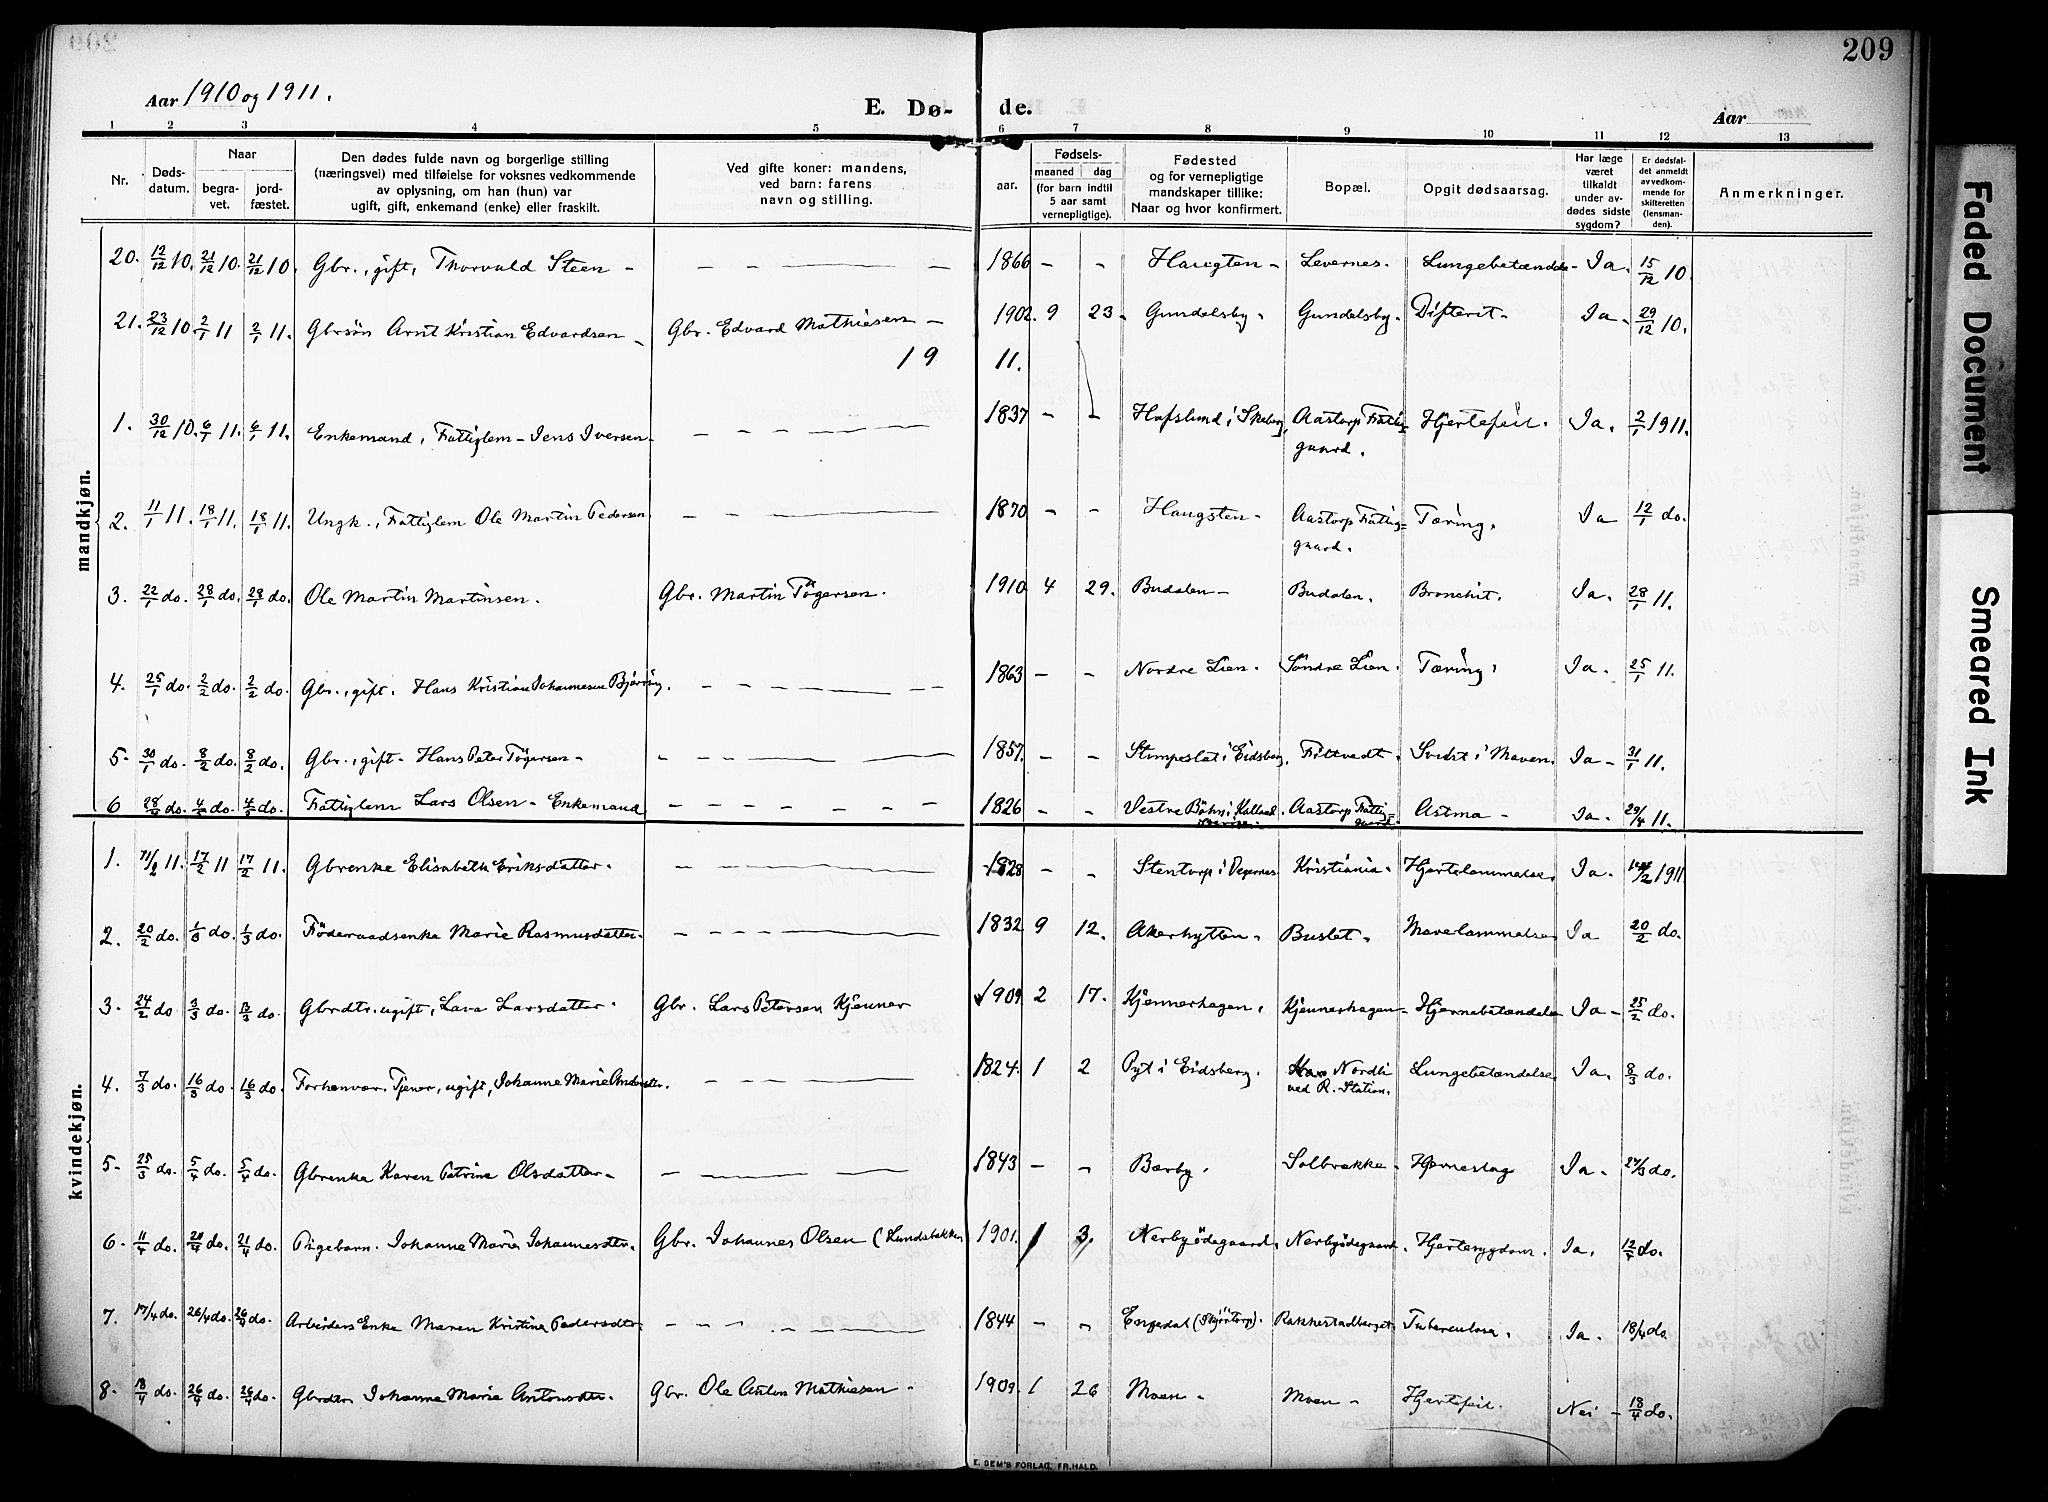 209
Aar 1910 og 1911.
E. Dø- de.
Aar
1 2 3 4 5 6 7 8 9 10 11 12 13
Nr.
Døds-
datum.
Naar
begra-
vet.
jord-
fæstet.
Den dødes fulde navn og borgerlige stilling
(næringsvei) med tilføielse for voksnes vedkommende
av oplysning, om han (hun) var
ugift, gift, enkemand (enke) eller fraskilt.
Ved gifte koner: mandens,
ved barn: farens
navn og stilling.
Fødsels-
aar. maaned dag
(for barn indtil
5 aar samt
vernepligtige).
Fødested
og for vernepligtige
mandskaper tillike:
Naar og hvor konfirmert.
Bopæl.
Opgit dødsaarsag.
Har læge
været
tilkaldt
under av-
dødes sidste
sygdom?
Er dødsfal-
det anmeldt
av vedkom-
mende for
skifteretten
(lensman-
den).
Anmerkninger.
mandkjøn.
20. 12/12 10. 21/12 10. 21/12 10. Gbr., gift, Thorvald Steen - - - - 1866 - - Haugten - Levernes. Lungebetændelse - Ja. 15/12 10.
21. 23/12 10. 2/1 11 2/1 11. Gbrsøn Arnt Kristian Edvardsen - Gbr. Edvard Mathiesen - 1902. 9 23. Gundelsby. Gundelsby. Difterit - Ja - 29/12 10.
19 11.
1. 30/12 10. 6/1 11. 6/1 11. Enkemand, Fattiglem - Jens Iversen - - - - 1837 - - Hafslund i Skeberg, Aastorp Fattig= Hjertefeil. Ja. 2/1 1911.
gaard.
2. 11/1 11. 18/1 11. 18/1 11. Ungk., Fattiglem Ole Martin Pedersen - - - 1870 - - Haugsten - Aastorp Fattig= Tæring. Ja 12/1 do.
gaard.
3. 22/1 do. 28/1 do. 28/1 do. Ole Martin Martinsen. Gbr. Martin Tøgersen. 1910 4 29. Budalen - Budalen. Bronchit. Ja. 28/1 11.
4. 25/1 do. 2/2 do. 2/2 do. Gbr., gift. Hans Kristian Johannesen Bjørring. - - - 1863 - - Nordre Lien. Søndre Lien. Tæring. Ja. 25/1 11.
5- 30/1 do. 8/2 do. 8/2 do. Gbr., gift - Hans Peter Tøgersen - - - - 1857. - - i Eidsberg. i Maven. Ja - 31/1 11.
6 28/4 do. do. do. Fattiglem Lars Olsen - Enkemand - - - 1826 - - Vestre Aastorp Fattig= Astma - Ja. 29/4 11.
gaard.
kvindekjøn.
1. 11/2 11. 17/2 11 17/2 11. Gbrenke Elisabeth Eriksdatter. - - - 1828 - - Stentorp i Degernes Kristiania. Hjertelammelse. Ja. 14/2 1911
2. 20/2 do. 1/3 do. 1/3 do. Føderaadsenke Marie Rasmusdatter. - - - 1832 9 12. Akerhytten. Buslet. Mavelammelse Ja 20/2 do.
3. 24/2 do 3/3 do. do. Gbrdtr. ugift, Lava Larsdatter. Gbr. Lars Petersen Kjenner 1909 2 17. Kjennerhagen. Kjennerhagen - Hjernebetændelse Ja - 25/2 do.
4. 7/3 do. 16/3 do. 16/3 do. Forhenvær. Tjener, ugift, Johanne Marie Andersdtr. - - - 1824. 1 2 Pyt i Eidsberg. Nordli Lungebetændelse Ja. 8/3 do.
ved R. Station.
5- 25/3 do. 5/4 do. 5/4 do. Gbrenke Karen Petrine Olsdatter - - - - 1843 - - Bærby. Solbrække. Hjerneslag Ja. 27/3 do.
6. 11/4 do. 20/4 do. 21/4 do. Pigebarn. Johanne Marie Johannesdtr. Gbr. Johannes Olsen (Lundebakken) 1901. 1 3. Nerbyødegaard. Nerbyødegaard. Hjertesygdom. Ja. 12/4 do.
7. 17/4 do. 26/4 do. 26/4 do. Arbeiders Enke Maren Kristine Pedersdtr. - - - 1844 - - Engedal (Skjørtorp). Rakkestadberget. Tuberculose. Ja. 18/4 do.
8. 18/4 do. 26/4 do. 26/4 do. Gbrdtr. Johanne Marie Antonsdtr. Gbr. Ole Anton Mathiesen - 1909. 1 26 Moen - Moen - Hjertefeil. Nei - 18/4 do.
E. SEM'S FORLAG, FR.HALD.
Faded Document
Smeared Ink